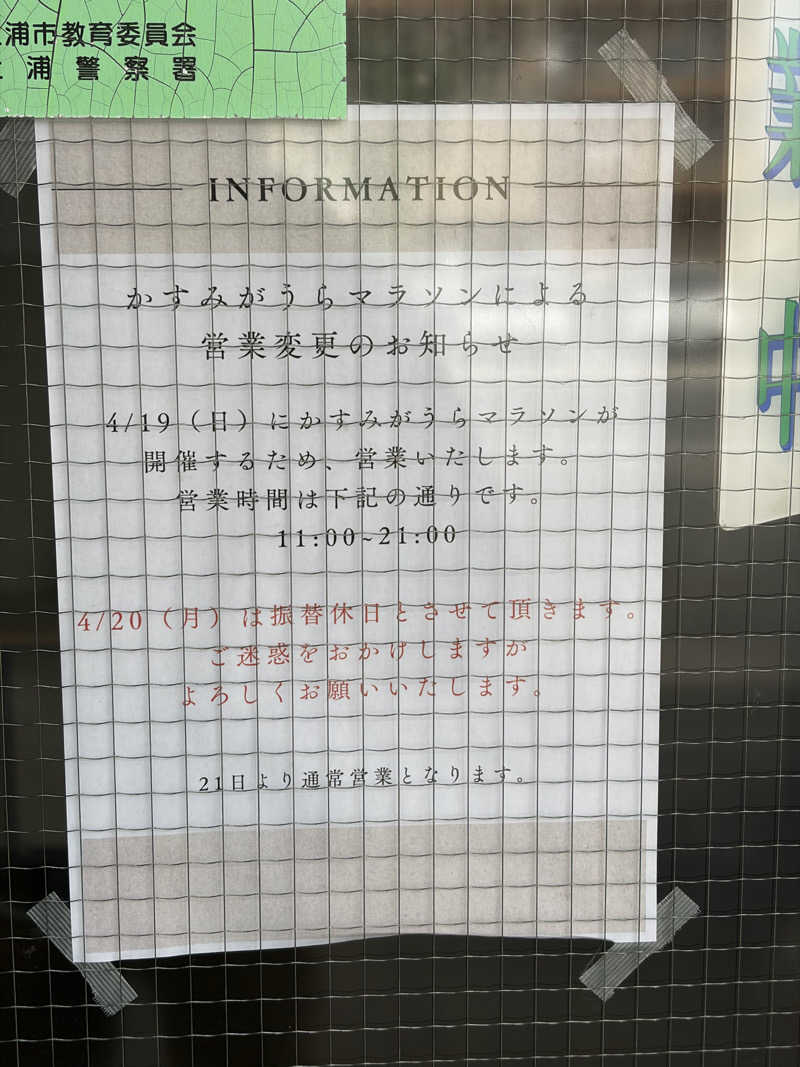 浦市教育委員会
浦警察署
業
中
INFORMATION
かすみがうらマラソンによる
営業変更のお知らせ
4/19（日）にかすみがうらマラソンが
開催するため、営業いたします。
営業時間は下記の通りです。
11:00~21:00
4/20（月）は振替休日とさせて頂きます。
ご迷惑をおかけしますが
よろしくお願いいたします。
21日より通常営業となります。